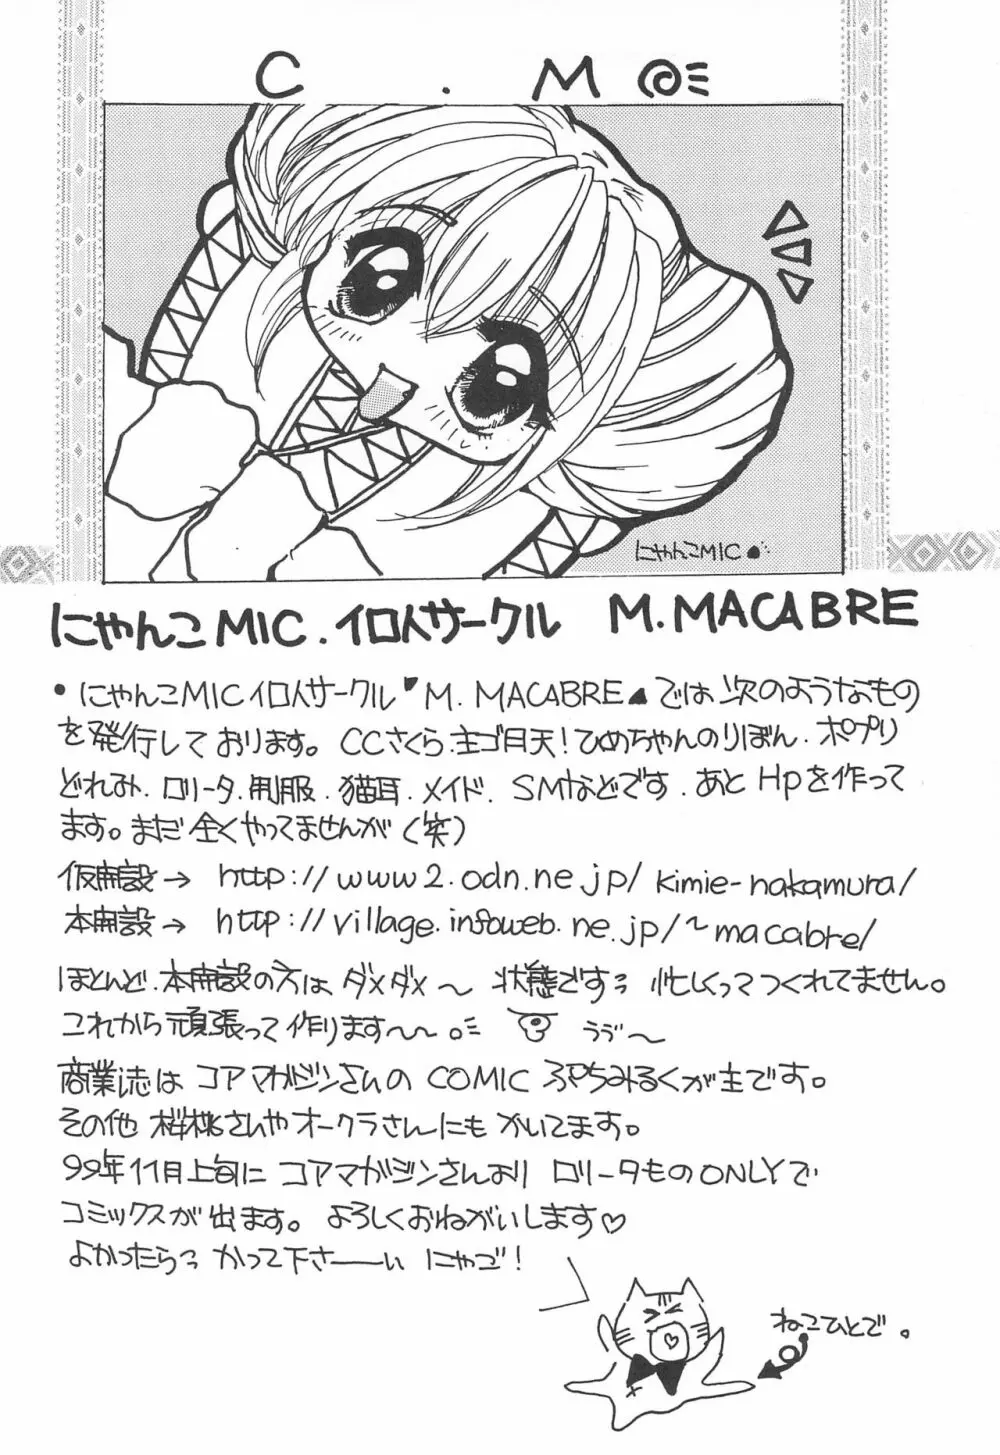 C . M
にゃんこMIC
にゃんこMIC.イロ人サークル M.MACABRE
・にゃんこMICイロ人サークル M. MACABRE では次のようなもの
を発行しております。CCさくら.主ゴ月天!ひめちゃんのりぼん.ポプリ
どれみ.ロリータ.制服.猫耳.メイド.SMなどです.あとHpを作って
ます。まだ全くやってませんが(笑)
仮開設→ http://www2.odn.ne.jp/kimie-nakamura/
本開設→ http://village.infoweb.ne.jp/~macabre/
ほとんど.本開設の方はダメダメ〜状態ですぅ 忙しくってつくれてません。
これから頑張って作ります〜〜。 うぅ〜
商業誌はコアマガジンさんのCOMICぷちみるくが主です。
その他桜桃さんやオークラさんにもかいてます。
99年11月上旬にコアマガジンさんよりロリータものONLYで
コミックスが出ます。よろしくおねがいします♡
よかったらっかって下さーーい にゃご!
ねこひとで。